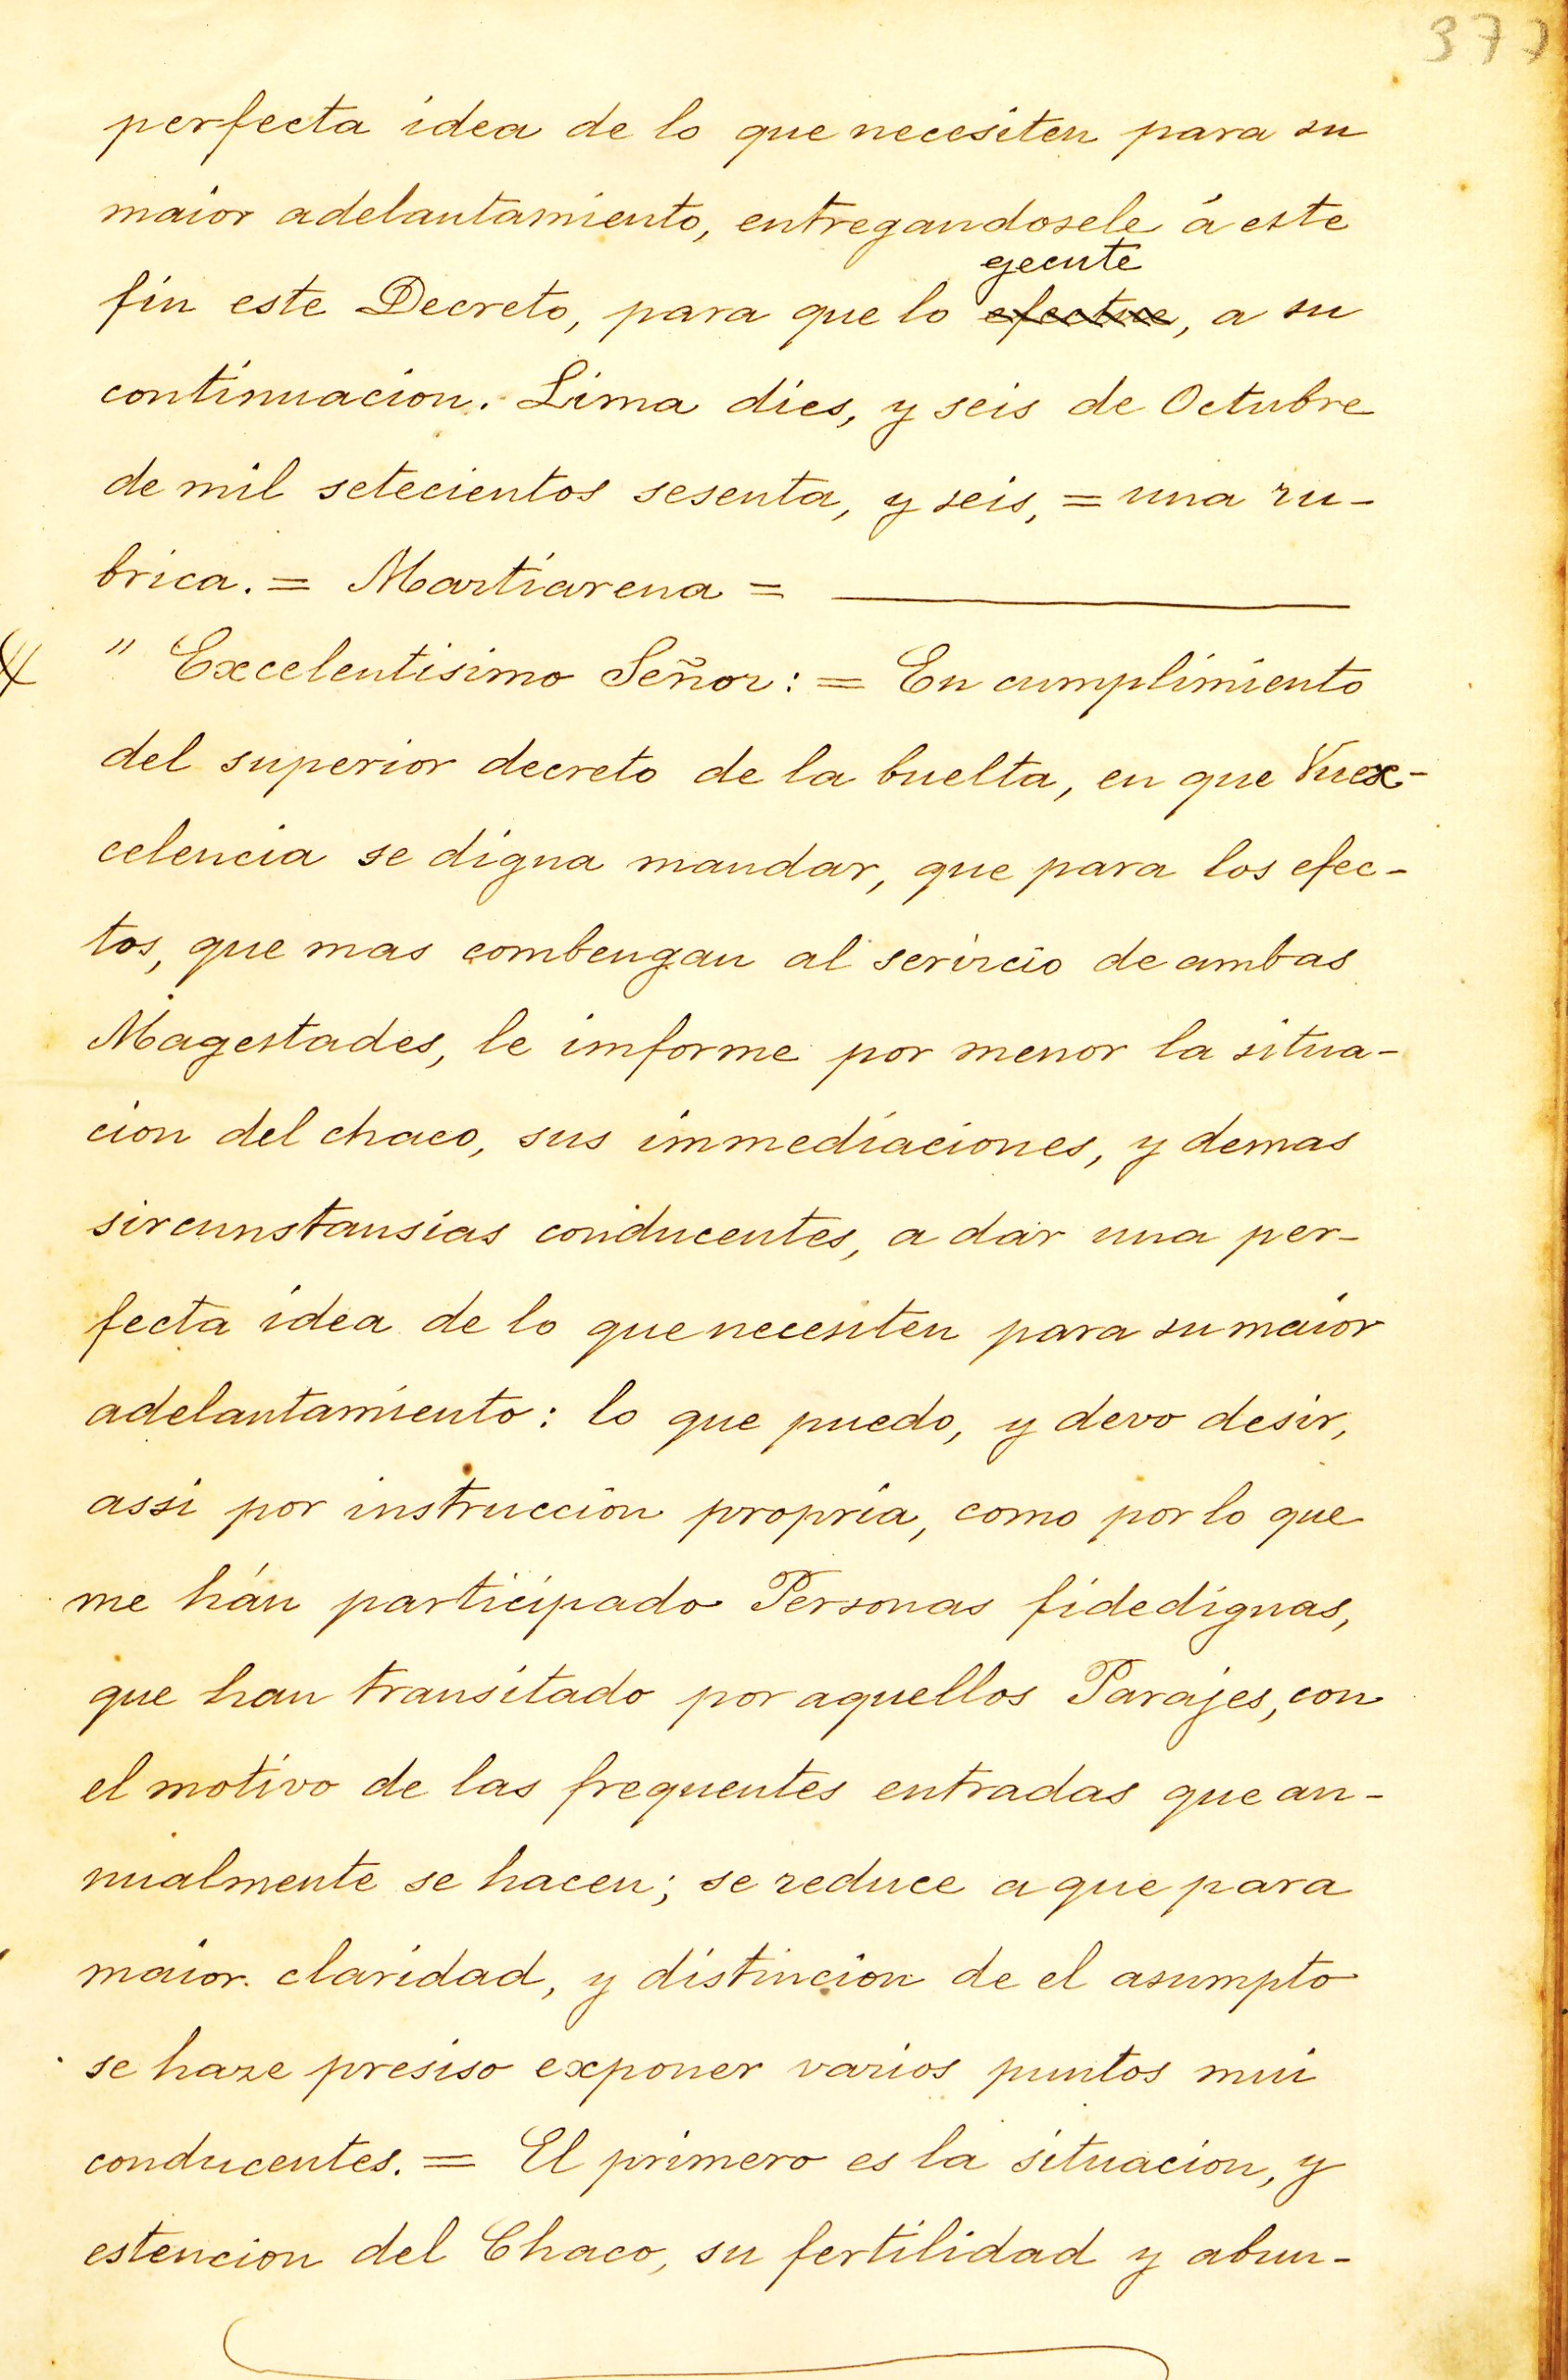 377
perfecta idea de lo que necesiten para su
maior adelantamiento, entregandosele á este
ejecute
fin este Decreto, para que lo efectue, a su
continuacion. Lima dies, y seis de Octubre
de mil setecientos sesenta, y seis, = una ru-
brica. = Martiarena =
" Excelentisimo Señor: = En cumplimiento
del superior decreto de la buelta, en que Vuex-
celencia se digna mandar, que para los efec-
tos, que mas combengan al servicio de ambas
Magestades, le imforme por menor la situa-
cion del chaco, sus immediaciones, y demas
sircunstansias conducentes, a dar una per-
fecta idea de lo que necesiten para su maior
adelantamiento: lo que puedo, y devo desir,
assi por instruccion propria, como por lo que
me hán participado Personas fidedignas,
que han transitado por aquellos Parajes, con
el motivo de las frequentes entradas que an-
nualmente se hacen; se reduce a que para
maior claridad, y distincion de el asumpto
se haze presiso exponer varios puntos mui
conducentes. = El primero es la situacion, y
estencion del Chaco, su fertilidad y abun-